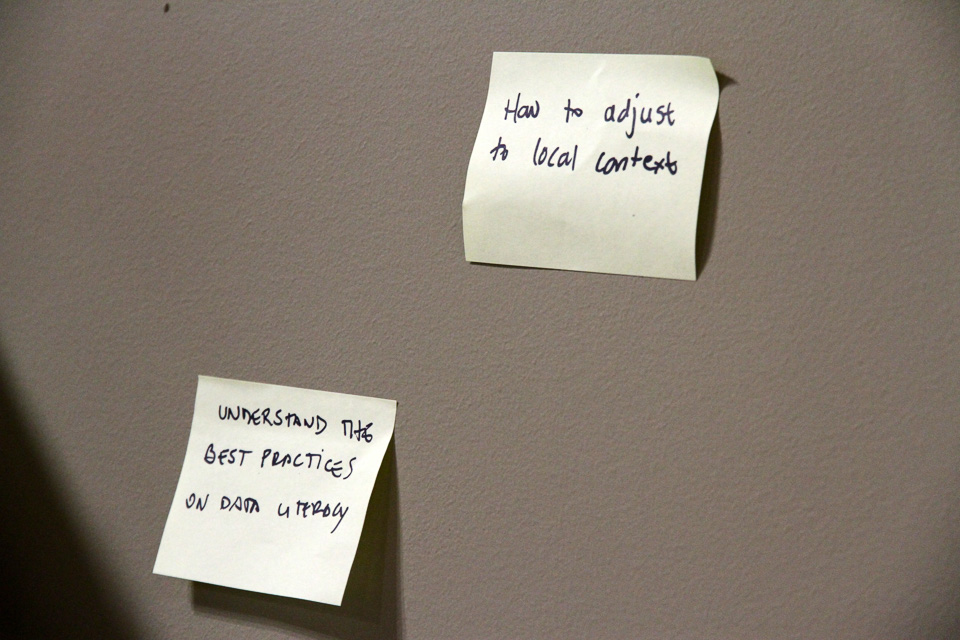 How to adjust
to local contexts
UNDERSTAND THE
BEST PRACTICES
ON DATA LITERACY